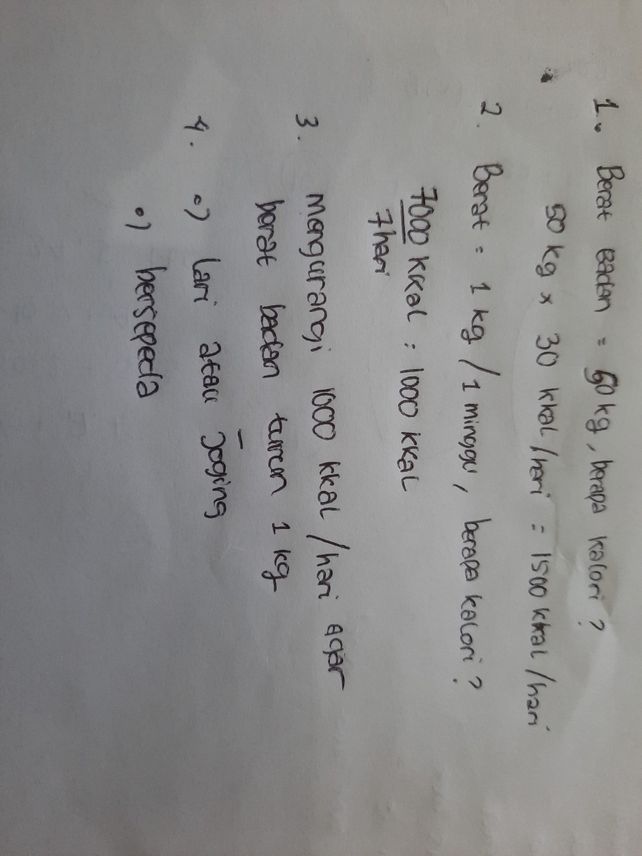 1. Berat Badan = 50 kg, berapa kalori?
50 kg x 30 kkal/hari = 1500 kkal/hari
2. Berat = 1 kg / 1 minggu, berapa kalori?
7000 kkal = 1000 kkal
7 hari
3. Mengurangi 1000 kkal/hari agar
berat badan turun 1 kg
4. •) lari atau Joging
•) bersepeda